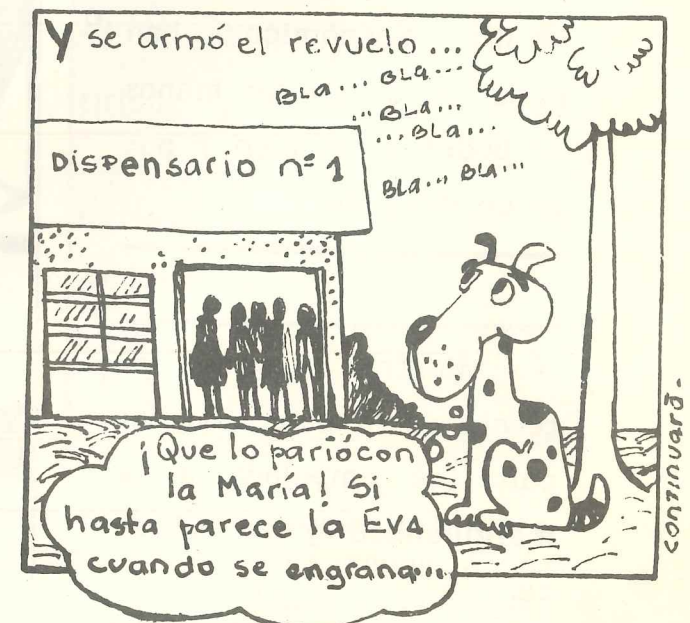 Y se armó el revuelo ...
BLa... BLa...
... BLa...
... BLa...
BLa... BLa...
Dispensario nº 1
¡Que lo parió con
la María! Si
hasta parece la Eva
cuando se engrana...
continuará.